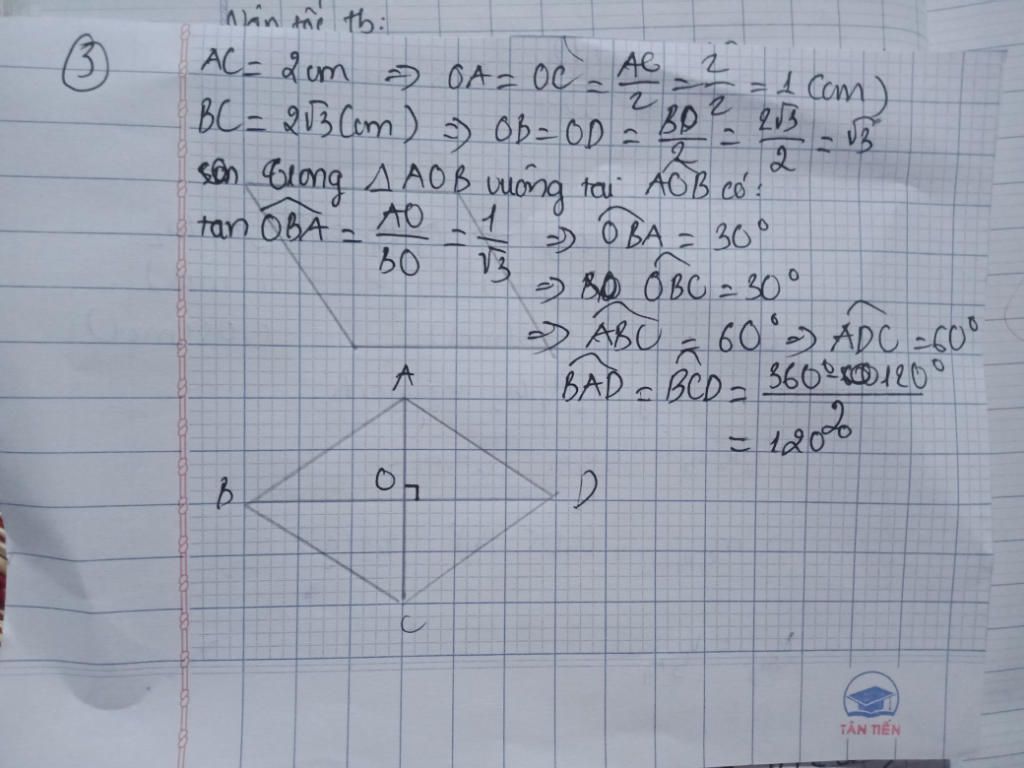 Nhân thế tb:
③
AC = 2cm ⇒ OA = OC = AC/2 = 2/2 = 1 (cm)
BC = 2√3 (cm) ⇒ OB = OD = BD/2 = 2√3/2 = √3
Trong △AOB vuông tại AOB có:
tan OBA = AO/BO = 1/√3 ⇒ OBA = 30°
⇒ OBC = 30°
⇒ ABC = 60° ⇒ ADC = 60°
BAD = BCD = 360° - 120°/2
= 120°
A
B
O
D
C
TÂN TIẾN